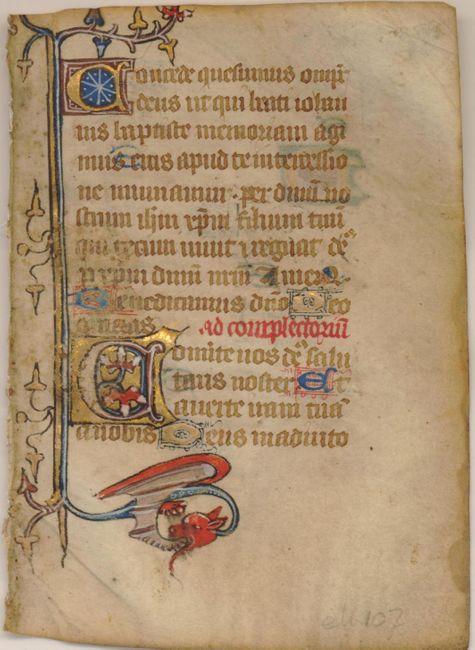 Concede quesumus omp̄s
deus ut qui beati iohan
nis baptiste memoriam agi
mus eius apud te intercessio
ne muniamur . per dn̄m no
strum ihm xp̄m filium tuū
qui tecum uiuit ⁊ regnat de
p xpm dn̄m nr̄m Amen
Benedicamus dn̄o Deo
gracias ad complectoriū
Conuerte nos de salu
taris noster Et
auerte iram tuā
a nobis Deus in adiuto
107